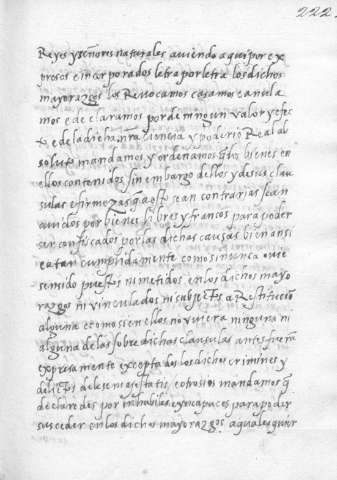 222.
Reyes y señores naturales aviendo aqui por ex
presos e incorporados letra por letra los dichos
mayorazgos los Revocamos casamos anula
mos e declaramos por de ningun valor y efec
to, e de la dicha nra ciencia y poderio Real ab
soluto mandamos y ordenamos q los bienes en
ellos contenidos sin embargo dellos y de sus clau
sulas e firmezas q a esto sean contrarias sean
avidos por bienes libres y francos para poder
ser confiscados por las dichas causas bien ansi
e a tan cumplidamente como si nunca ouie
sen sido puestos ni metidos en los dichos mayo
razgos ni vinculados ni subjectos a Restitucion
alguna e como si en ellos no vuiera ninguna ni
alguna de las sobredichas clausulas antes fuera
expresamente exceptados los dichos crimines y
delictos de lese magestatis, e otrosi os mandamos q
declaredes por inhabiles e yncapaces para poder
susceder en los dichos mayorazgos a qualesquier